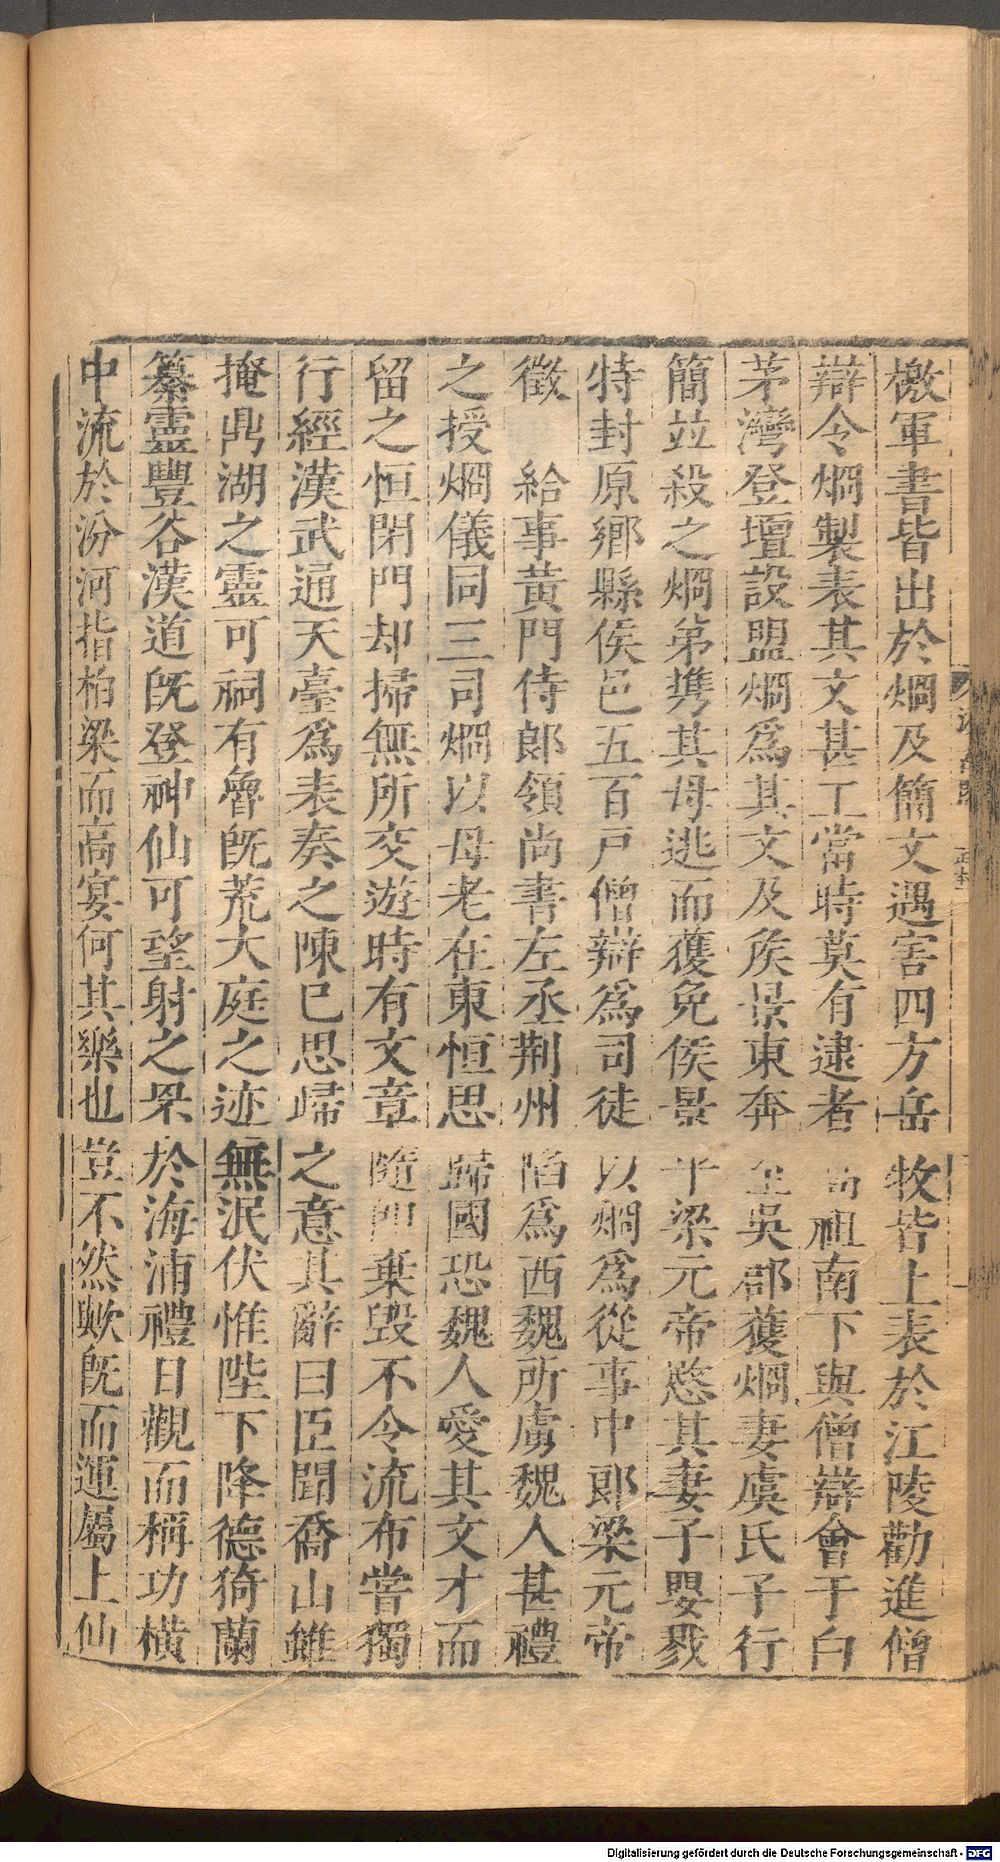 檄軍書皆出於烱及簡文遇害四方岳牧皆上表於江陵勸進僧
辯令烱製表其文甚工當時莫有逮者高祖南下與僧辯會于白
茅灣登壇設盟烱爲其文及矦景東奔至吳郡獲烱妻虞氏子行
簡並殺之烱弟携其母逃而獲免侯景平梁元帝愍其妻子嬰戮
特封原鄉縣侯邑五百戸僧辯爲司徒以烱爲從事中郎梁元帝
徵　給事黄門侍郎領尚書左丞荆州陷爲西魏所虜魏人甚禮
之授烱儀同三司烱以母老在東恒思歸國恐魏人愛其文才而
留之恒閉門却掃無所交遊時有文章隨即棄毁不令流布嘗獨
行經漢武通天臺爲表奏之陳已思歸之意其辭曰臣聞喬山雖
掩鼎湖之靈可祠有魯旣荒大庭之迹無泯伏惟陛下降德猗蘭
纂靈豐谷漢道旣登神仙可望射之罘於海浦禮日觀而稱功横
中流於汾河指柏梁而高宴何其樂也豈不然歟旣而運屬上仙
Digitalisierung gefördert durch die Deutsche Forschungsgemeinschaft - DFG